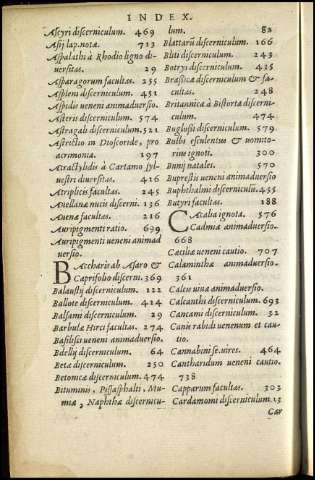 INDEX.
Astyri discerniculum. 469
Asij lap. nota. 713
Aspalathi à Rhodio ligno di-
uersitas. 29
Asparagorum facultas. 255
Aspleni discerniculum. 451
Aspidis ueneni animaduersio.
Asteris discerniculum. 574
Astragali discerniculum. 521
Astrictio in Dioscoride, pro
acrimonia. 197
Atractylidis à Cartamo syl-
uestri diuersitas. 416
Atriplicis facultas. 245
Auellanæ nucis discerni. 136
Auenæ facultas. 216
Auripigmenti ratio. 699
Auripigmenti ueneni animad
uersio.
BAccharis ab Asaro &
Caprifolio discerni. 369
Balausty discerniculum. 122
Ballote discerniculum. 424
Balsami discerniculum. 29
Barbulæ Hirci facultas. 274
Basilisci ueneni animaduersio.
Bdelij discerniculum. 64
Betæ discerniculum. 250
Betonicæ discerniculum. 474
Bituminis, Pissasphalti, Mu-
miæ, Naphthæ discernicu-
lum. 82
Blattariæ discerniculum. 166
Bliti discerniculum. 243
Botrys discerniculum. 425
Brassicæ discerniculum & fa-
cultas. 248
Britannicæ à Bistorta discerni-
culum. 474
Buglossi discerniculum. 579
Bulbi esculentus & uomito-
rius ignoti. 300
Bunij natales. 570
Buprestis ueneni animaduersio
Buphthalmi discerniculũ. 435
Butyri facultas. 188
CAcalia ignota. 576
Cadmiæ animaduersio.
668
Caeciliæ ueneni cautio. 707
Calaminthæ animaduersio.
361
Calcis uiuæ animaduersio.
Calcanthi discerniculum. 692
Cancami discerniculum. 52
Canis rabidi uenenum et cau-
tio.
Cannabini se. uires. 464
Cantharidum ueneni cautio.
738
Capparum facultas. 303
Cardamomi discerniculum. 13
Car